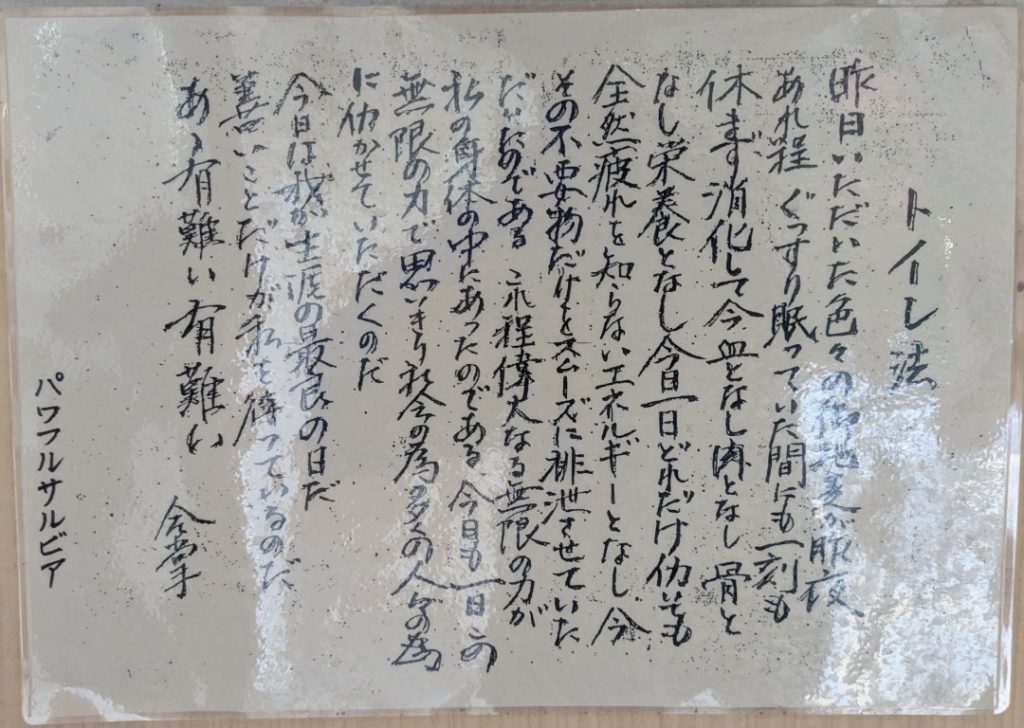 トイレ法
昨日いただいた色々の御地走が昨夜
あれ程ぐっすり眠っていた間にも一刻も
休まず消化して今血となし肉となし骨と
なし栄養となし今日一日どれだけ仂いても
全然疲れを知らないエネルギーとなし今
その不要物だけをスムーズに排泄させていた
だいたのである これ程偉大なる無限の力が
私の身体の中にあったのである 今日も一日この
無限の力で思いきり社会の為多くの人々の為
に仂かせていただくのだ
今日は我が生涯の最良の日だ
善いことだけが私を待っているのだ
あゝ有難い有難い
合掌
パワフルサルビア